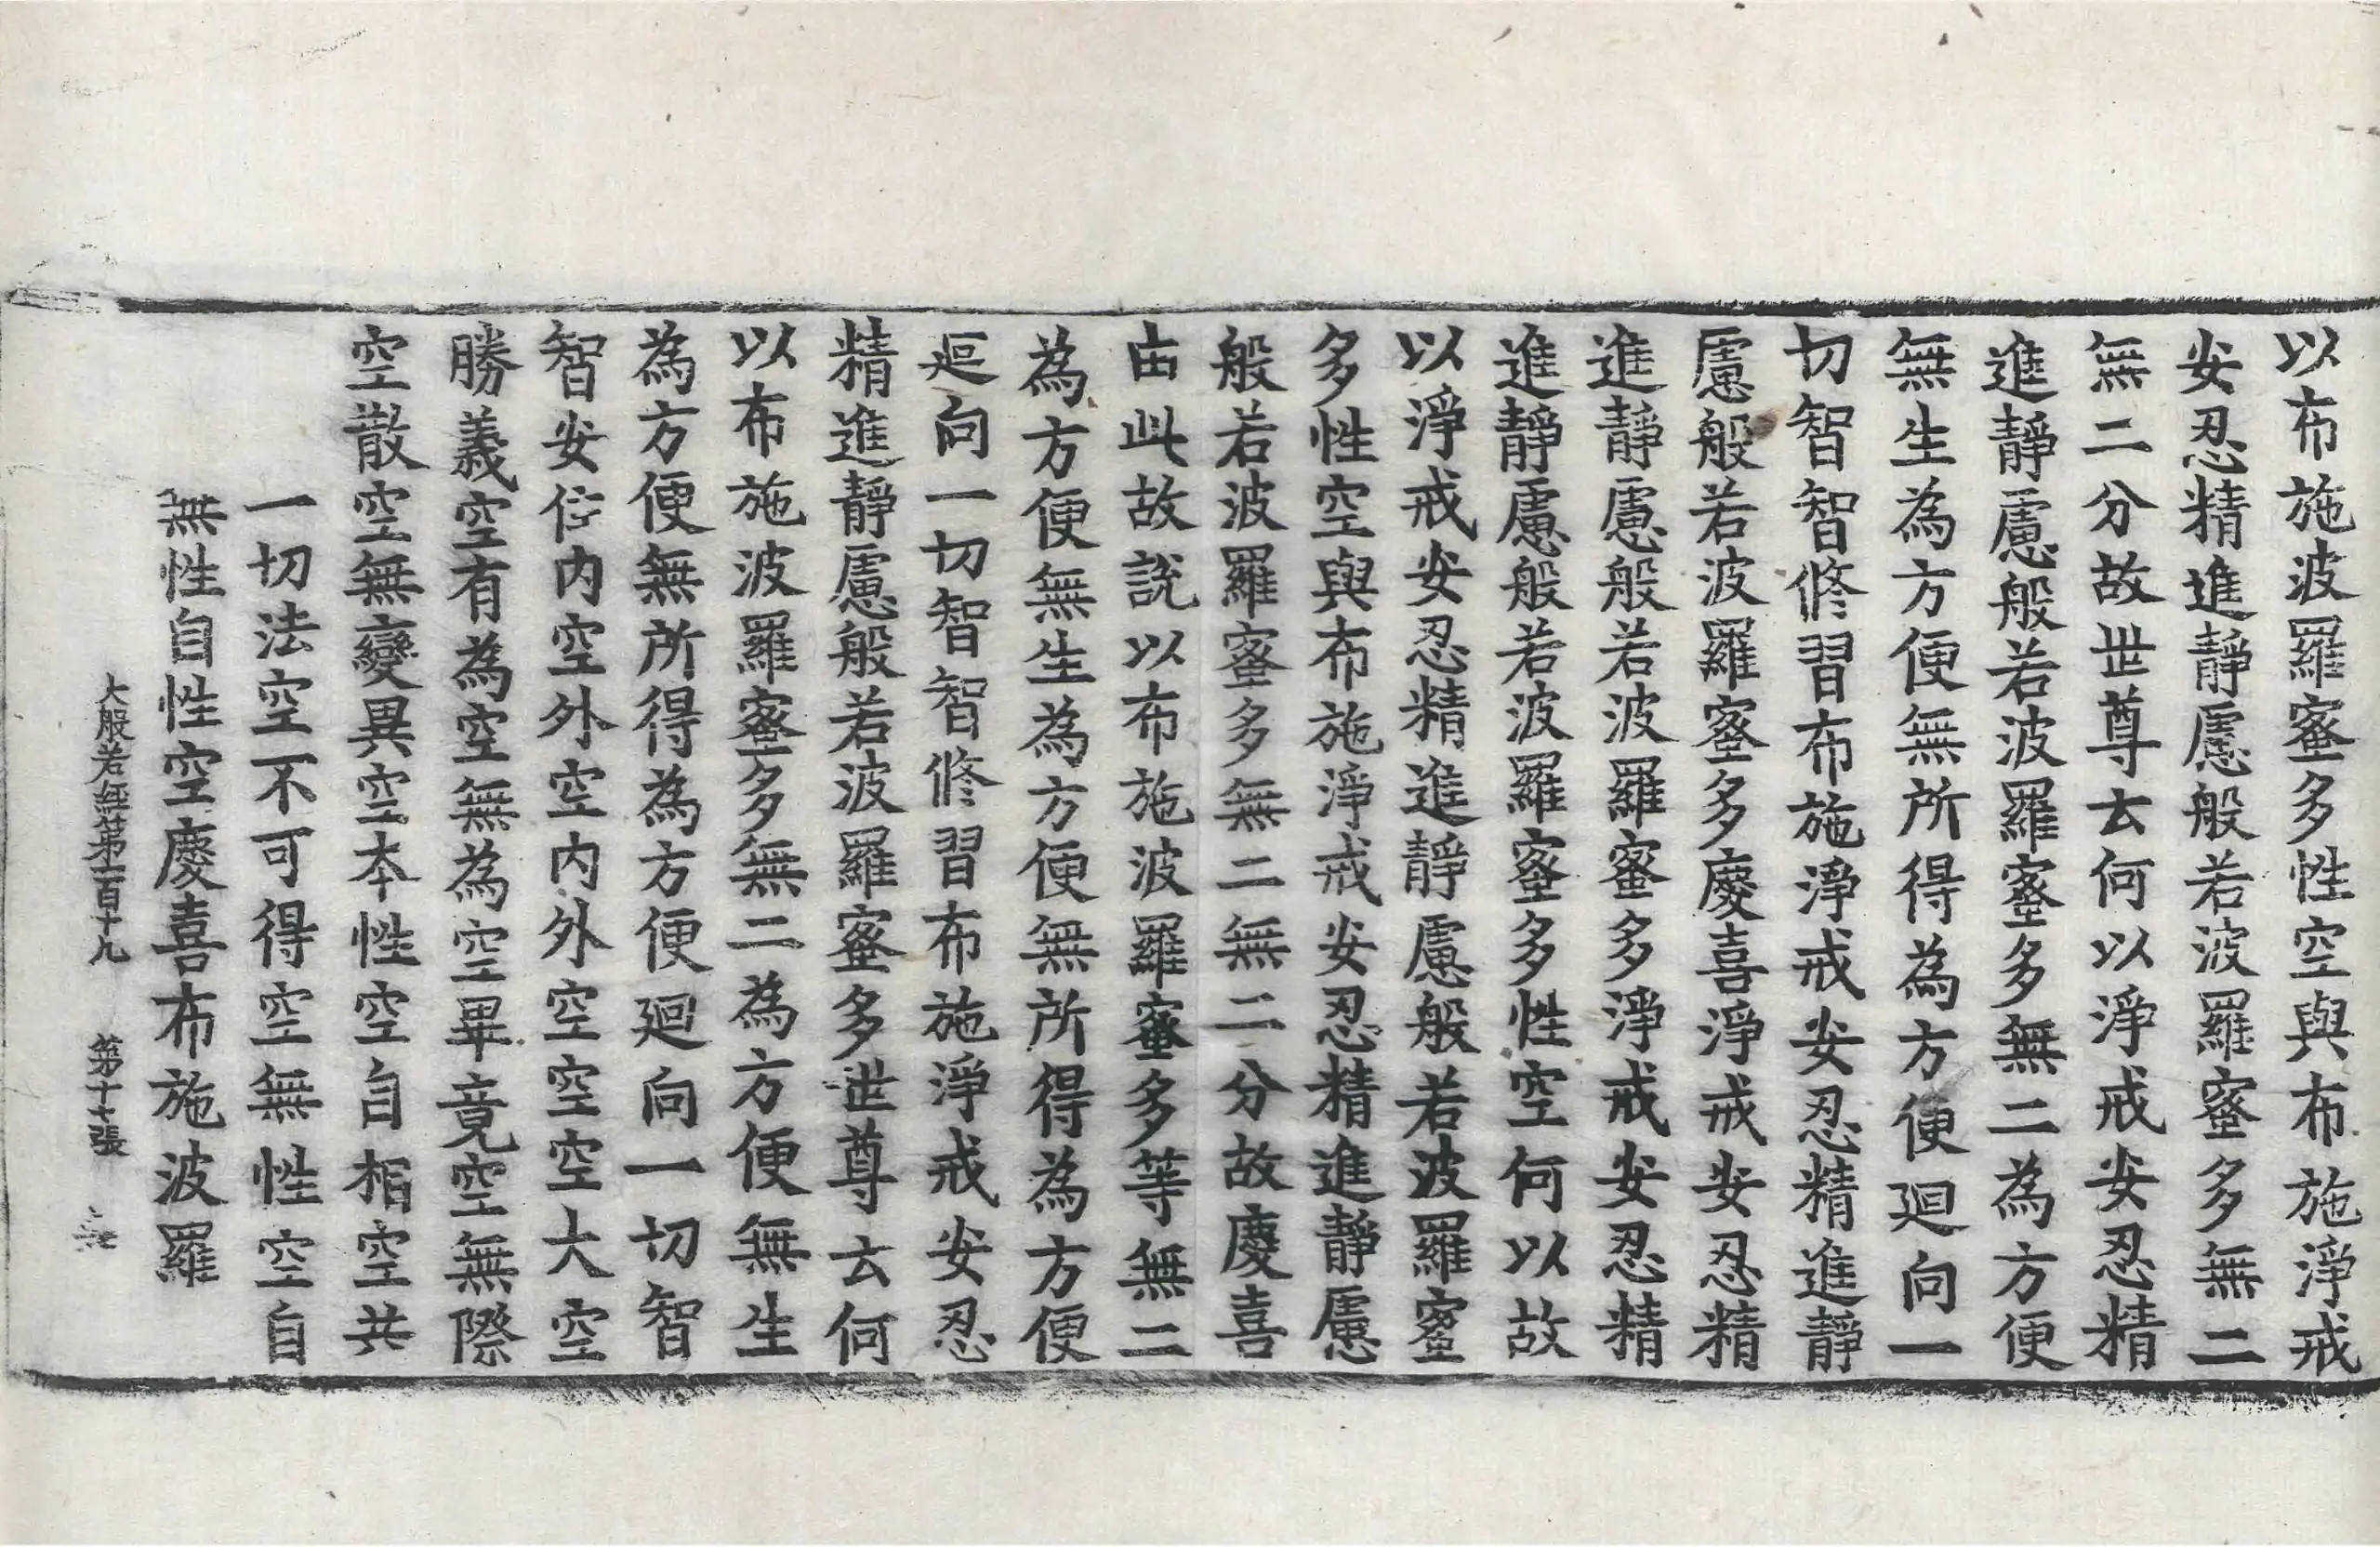 以布施波羅蜜多性空與布施淨戒
安忍精進靜慮般若波羅蜜多無二
無二分故世尊云何以淨戒安忍精
進靜慮般若波羅蜜多無二為方便
無生為方便無所得為方便廻向一
切智智修習布施淨戒安忍精進靜
慮般若波羅蜜多慶喜淨戒安忍精
進靜慮般若波羅蜜多淨戒安忍精
進靜慮般若波羅蜜多性空何以故
以淨戒安忍精進靜慮般若波羅蜜
多性空與布施淨戒安忍精進靜慮
般若波羅蜜多無二無二分故慶喜
由此故說以布施波羅蜜多等無二
為方便無生為方便無所得為方便
迴向一切智智修習布施淨戒安忍
精進靜慮般若波羅蜜多世尊云何
以布施波羅蜜多無二為方便無生
為方便無所得為方便廻向一切智
智安住內空外空內外空空空大空
勝義空有為空無為空畢竟空無際
空散空無變異空本性空自相空共
一切法空不可得空無性空自
無性自性空慶喜布施波羅
大般若經第一百十九 第十七張